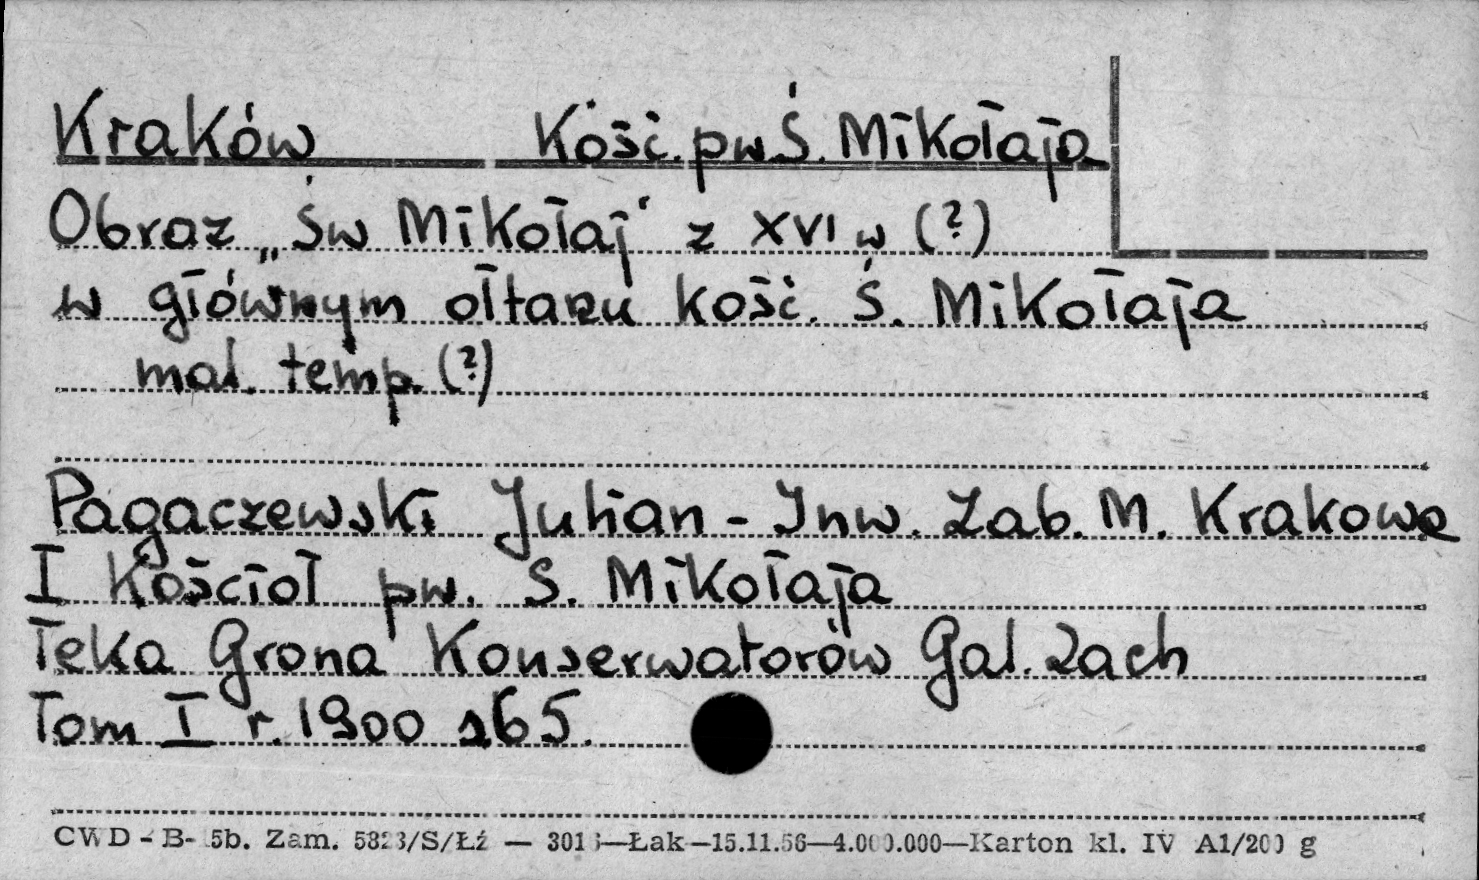 Kraków Kość. pw. Ś. Mikołaja
Obraz „Św Mikołaj" z XVI w (?)
w głównym ołtarzu kość. Ś. Mikołaja
mal. temp. (?)
Pagaczewski Julian - Inw. Zab. M. Krakowa
I Kościoł pw. S. Mikołaja
Teka Grona Konserwatorów Gal. Zach
Tom I r. 1900 s65.
CWD - B- 5b. Zam. 5823/S/Łź — 301 —Łak—15.11.56—4.000.000—Karton kl. IV A1/200 g